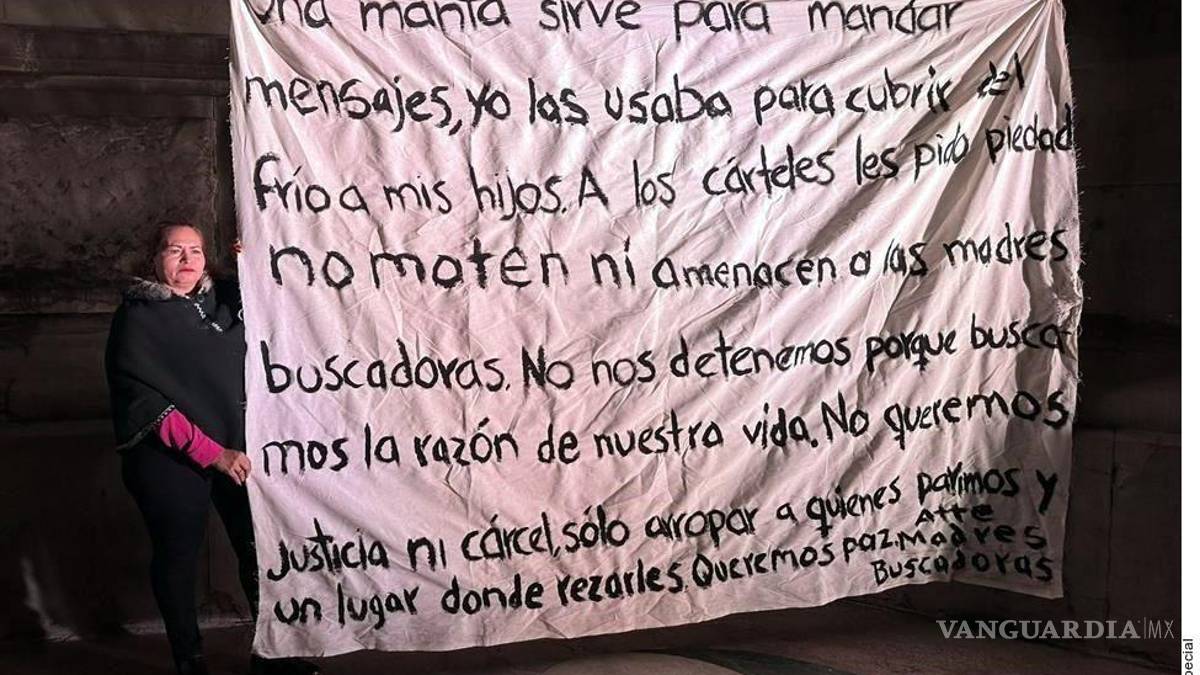 Una manta sirve para mandar
mensajes, yo las usaba para cubrir del
frío a mis hijos. A los cárteles les pido piedad
no maten ni amenacen a las madres
buscadoras. No nos detenemos porque busca-
mos la razón de nuestra vida. No queremos
justicia ni cárcel, sólo arropar a quienes parimos y
un lugar donde rezarles. Queremos paz.
Atte
Madres
Buscadoras
VANGUARDIA|MX
pecial